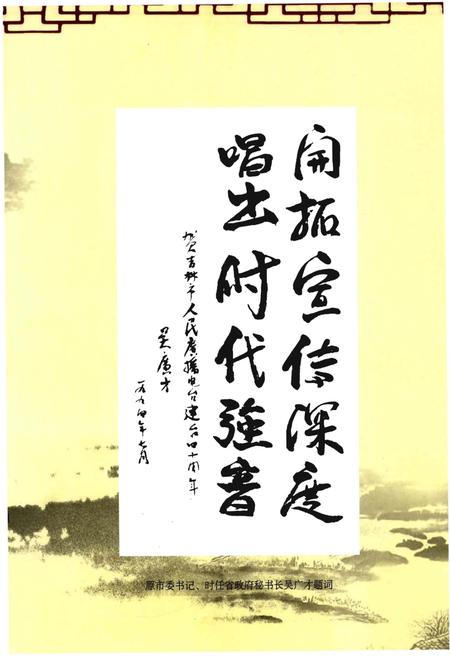 开拓宣传深度
唱出时代强音
贺吉林市人民广播电台建台四十周年
吴广才
一九九四年七月
原市委书记、时任省政府秘书长吴广才题词